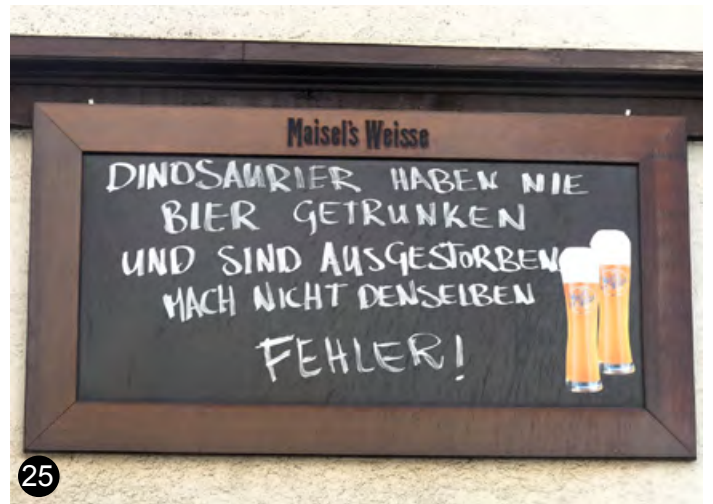 Maisel's Weisse
DINOSAURIER HABEN NIE
BIER GETRUNKEN
UND SIND AUSGESTORBEN
MACH NICHT DENSELBEN
FEHLER!
25